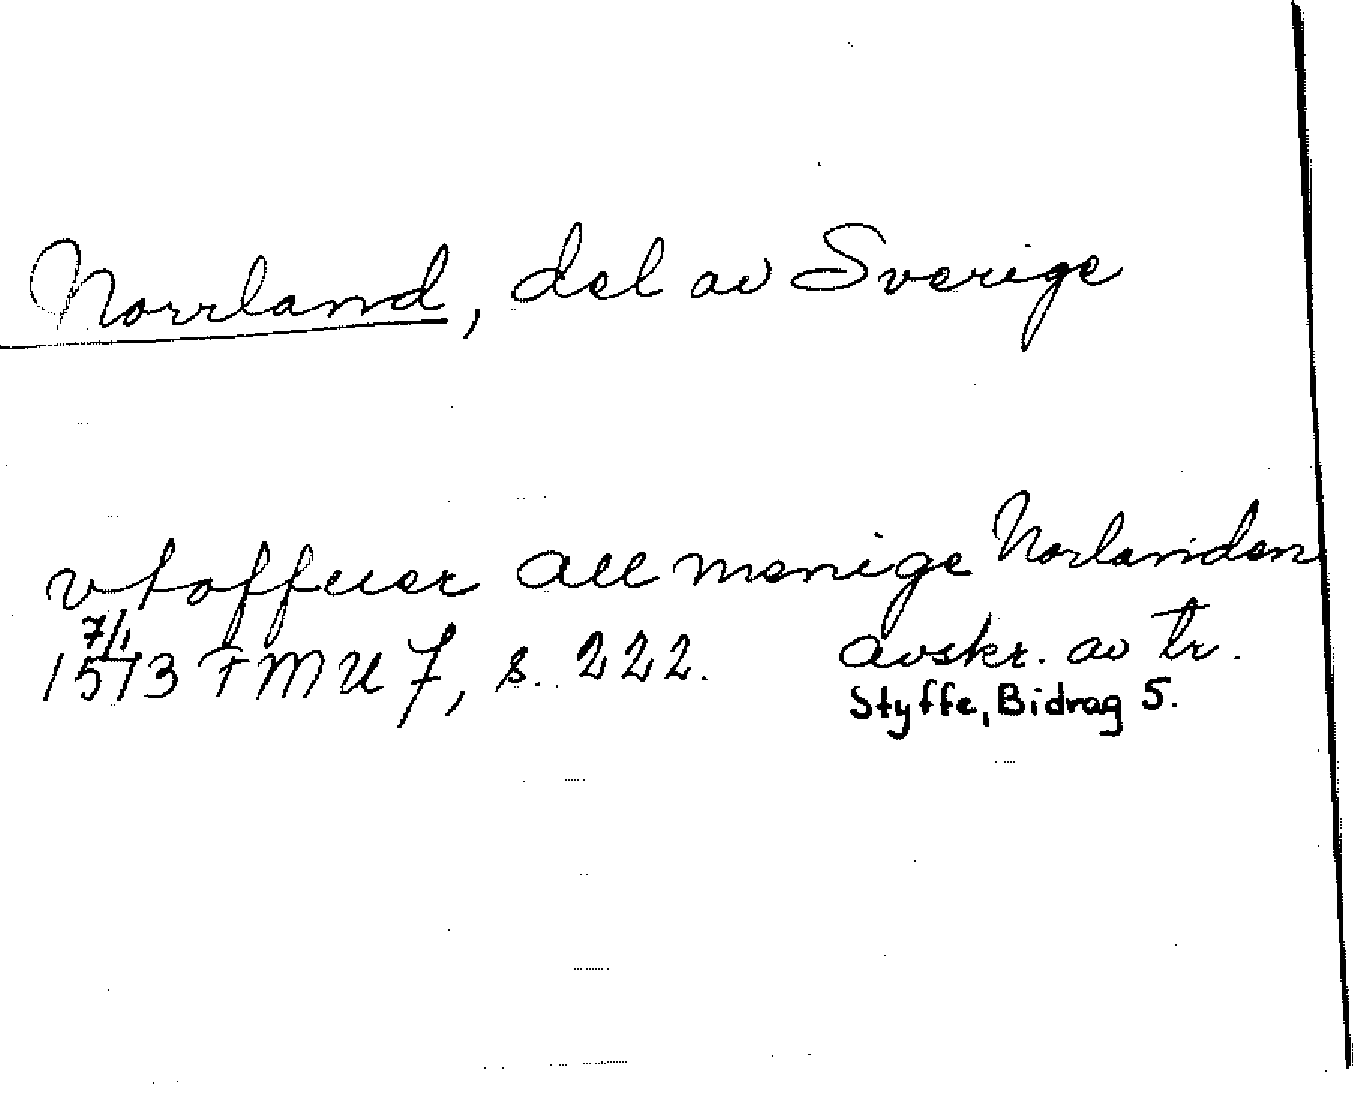 Norrland, del av Sverige
vtoffuer all menige Norlanden
7/1
1513 FMU 7, s. 222. avskr. av tr.
Styffe, Bidrag 5.